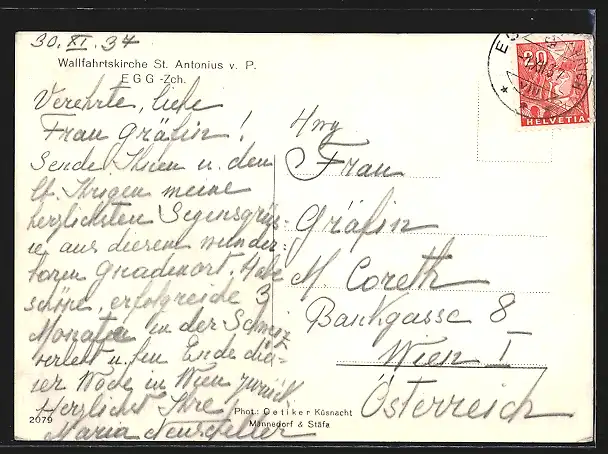 30. XI. 37
Wallfahrtskirche St. Antonius v. P.
EGG -Zch.
Verehrte, liebe
Frau Gräfin!
Sende Ihnen u. den
lb. Ihrigen meine
herzlichsten Segensgrüs-
se aus diesem wunder-
baren Gnadenort. Habe
schöne, erfolgreiche 3
Monate in der Schweiz
verlebt u. bin Ende die-
ser Woche in Wien zurück
Herzlichst Ihre
Maria
2079
Phot.: Oetiker Küsnacht
Männedorf & Stäfa
20
HELVETIA
Frau
Gräfin
M. Coreth
Bankgasse 8
Wien I
Österreich